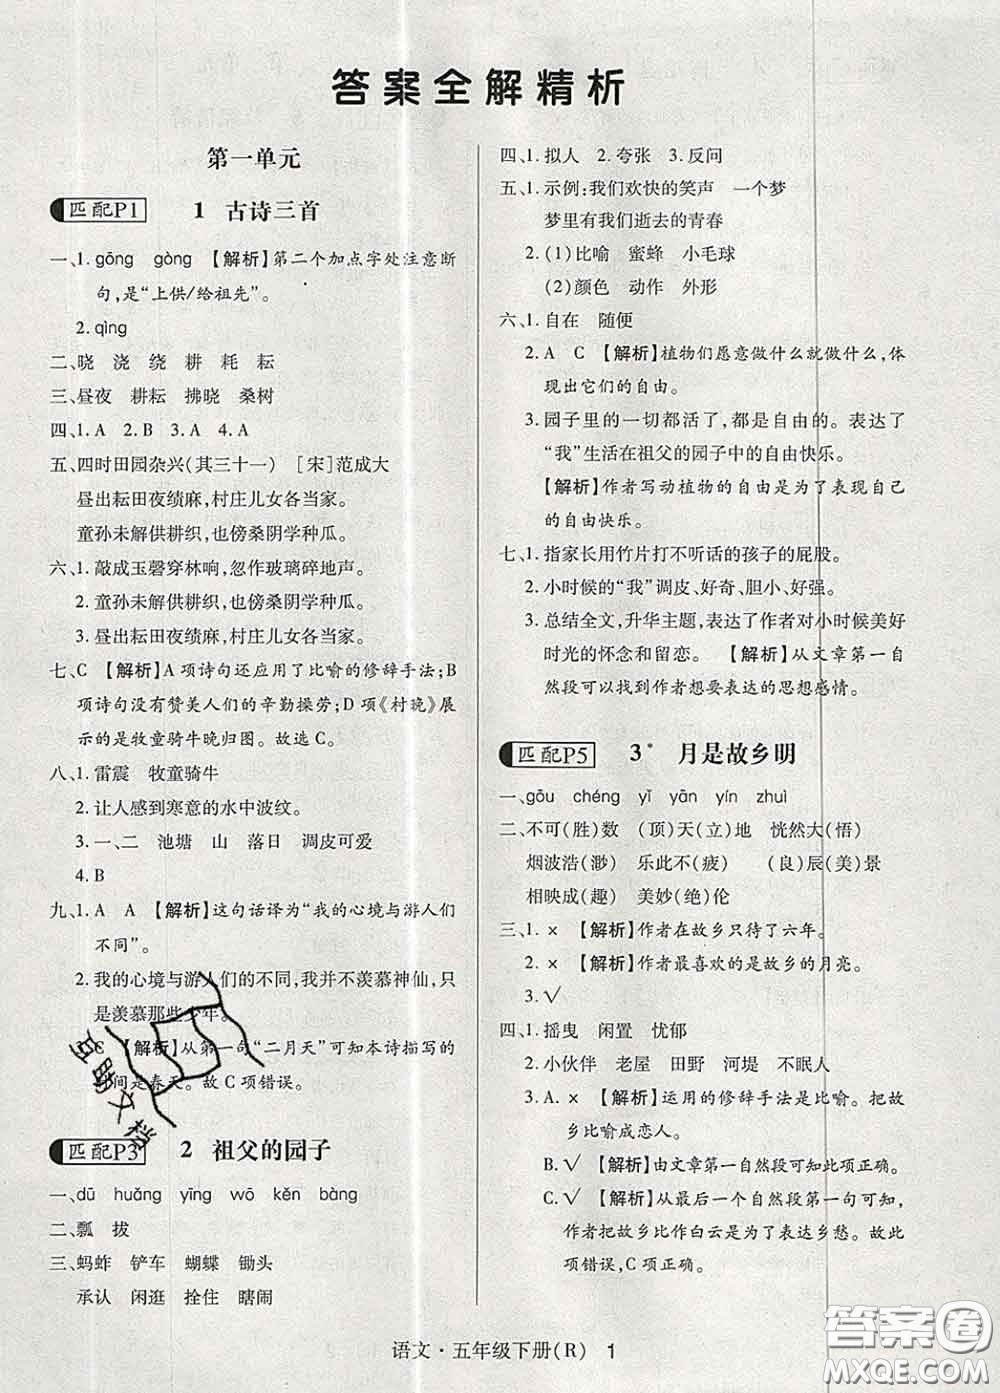 答案全解精析
第一单元
匹配P1 1 古诗三首
一、1. gōng gòng 【解析】第二个加点字处注意断
句,是“上供/给祖先”。
2. qìng
二、晓 浇 绕 耕 耗 耘
三、昼夜 耕耘 拂晓 桑树
四、1. A 2. B 3. A 4. A
五、四时田园杂兴(其三十一) [宋]范成大
昼出耘田夜绩麻,村庄儿女各当家。
童孙未解供耕织,也傍桑阴学种瓜。
六、1. 敲成玉磬穿林响,忽作玻璃碎地声。
2. 童孙未解供耕织,也傍桑阴学种瓜。
3. 昼出耘田夜绩麻,村庄儿女各当家。
七、C 【解析】A 项诗句还应用了比喻的修辞手法;B
项诗句没有赞美人们的辛勤操劳;D 项《村晚》展
示的是牧童骑牛晚归图。故选 C。
八、1. 雷震 牧童骑牛
2. 让人感到寒意的水中波纹。
3. 一、二 池塘 山 落日 调皮可爱
4. B
九、1. A A 【解析】这句话译为“我的心境与游人们
不同”。
2. 我的心境与游人们的不同,我并不羡慕神仙,只
是羡慕那些少年。
C 【解析】从第一句“二月天”可知本诗描写的
时间是春天。故 C 项错误。
匹配P3 2 祖父的园子
一、dū huǎng yīng wō kěn bàng
二、瓢 拔
三、蚂蚱 铲车 蝴蝶 锄头
承认 闲逛 拴住 瞎闹
四、1. 拟人 2. 夸张 3. 反问
五、1. 示例:我们欢快的笑声 一个梦
梦里有我们逝去的青春
2. (1)比喻 蜜蜂 小毛球
(2)颜色 动作 外形
六、1. 自在 随便
2. A C 【解析】植物们愿意做什么就做什么,体
现出它们的自由。
3. 园子里的一切都活了,都是自由的。表达了
“我”生活在祖父的园子中的自由快乐。
【解析】作者写动植物的自由是为了表现自己
的自由快乐。
七、1. 指家长用竹片打不听话的孩子的屁股。
2. 小时候的“我”调皮、好奇、胆小、好强。
3. 总结全文,升华主题,表达了作者对小时候美好
时光的怀念和留恋。 【解析】从文章第一自
然段可以找到作者想要表达的思想感情。
匹配P5 3* 月是故乡明
一、gōu chéng yǐ yān yín zhuì
二、不可(胜)数 (顶)天(立)地 恍然大(悟)
烟波浩(渺) 乐此不(疲) (良)辰(美)景
相映成(趣) 美妙(绝)伦
三、1. × 【解析】作者在故乡只待了六年。
2. × 【解析】作者最喜欢的是故乡的月亮。
3. √
四、1. 摇曳 闲置 忧郁
2. 小伙伴 老屋 田野 河堤 不眠人
3. A. × 【解析】运用的修辞手法是比喻。把故
乡比喻成恋人。
B. √ 【解析】由文章第一自然段可知此项正确。
C. √ 【解析】从最后一个自然段第一句可知,
作者把故乡比作白云是为了表达乡愁。故此
项错误,C 项正确。
互助文档
语文·五年级下册(R) 1
答案圈
MXQE.COM